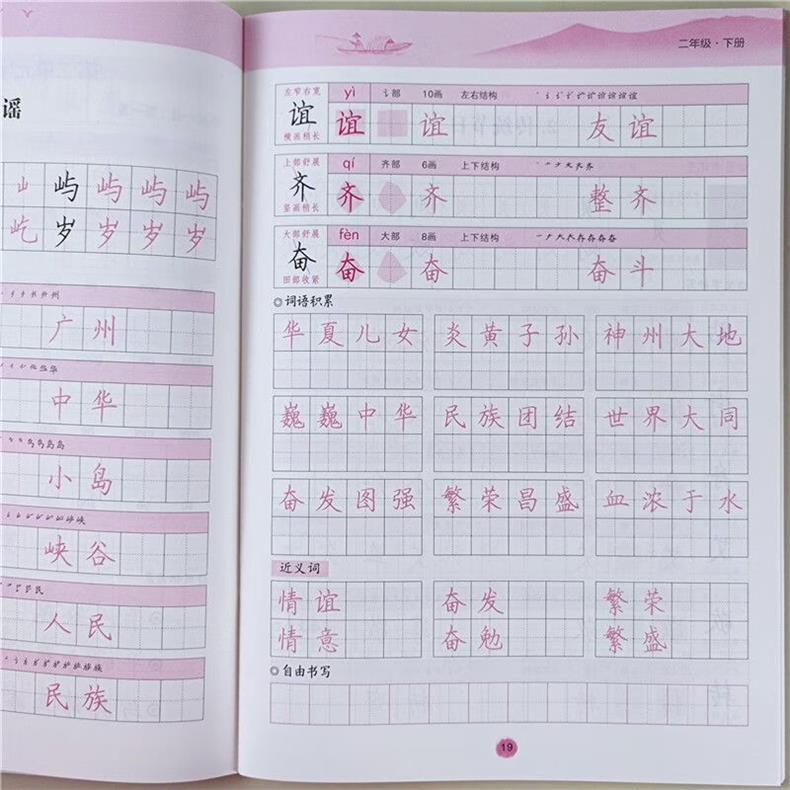 谣
屿 屿 屿 屿
屹 岁 岁 岁 岁
广州
中华
小岛
峡谷
人民
民族
二年级·下册
左窄右宽 yì 讠部 10画 左右结构
谊 谊 谊 友谊
横画稍长
上部舒展 qí 齐部 6画 上下结构
齐 齐 齐 整齐
竖画稍长
大部舒展 fèn 大部 8画 上下结构
奋 奋 奋 奋斗
田部收紧
词语积累
华夏儿女 炎黄子孙 神州大地
巍巍中华 民族团结 世界大同
奋发图强 繁荣昌盛 血浓于水
近义词
情谊 奋发 繁荣
情意 奋勉 繁盛
自由书写
19